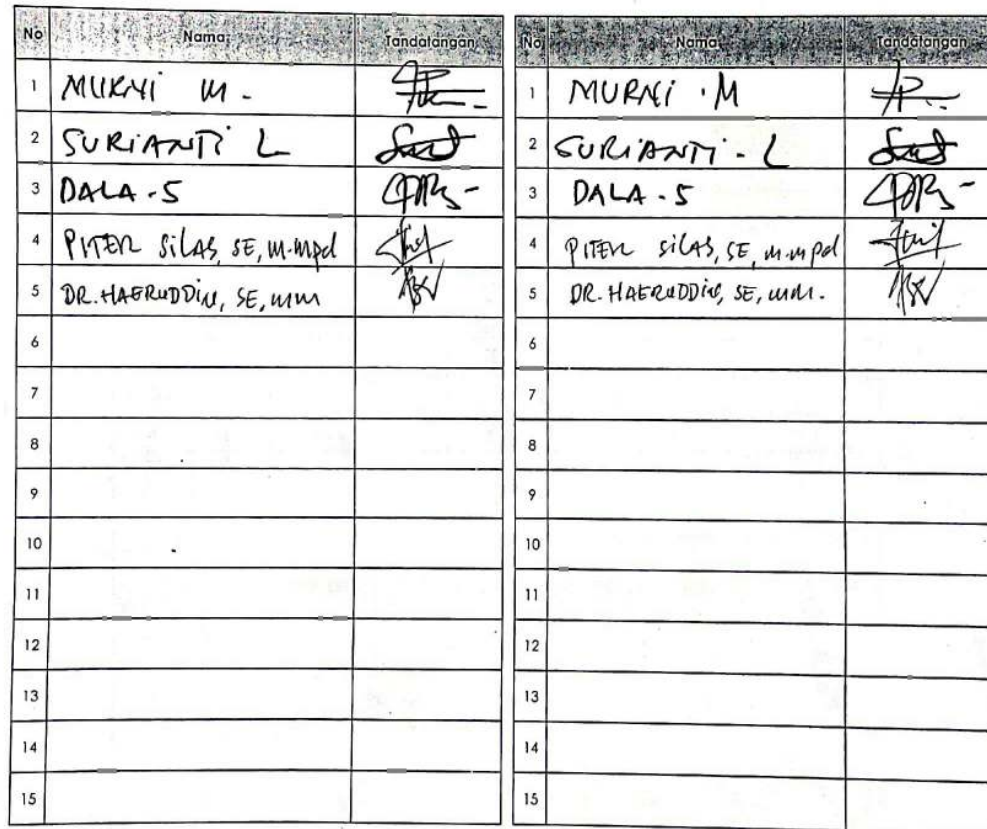 No Nama Tandatangan
1 MURNI M.
2 SURIANTI L
3 DALA-S
4 PITER SILAS, SE, M.MPd
5 DR. HAERUDDIN, SE, MM
6
7
8
9
10
11
12
13
14
15
No Nama Tandatangan
1 MURNI .M
2 SURIANTI - L
3 DALA-S
4 PITER SILAS, SE, M.MPd
5 DR. HAERUDDIN, SE, MM.
6
7
8
9
10
11
12
13
14
15